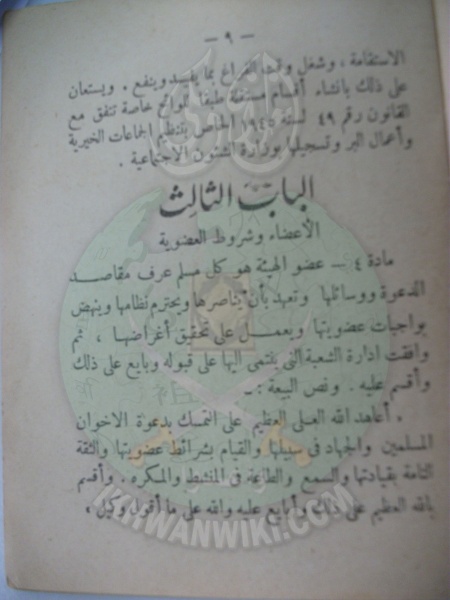 — ٩ —
الاستقامة ، وشغل وقت الفراغ بما يفيد وينفع . ويستعان
على ذلك بانشاء أقسام مستقلة طبقا للوائح خاصة تتفق مع
القانون رقم ٤٩ لسنة ١٩٤٥ الخاص بتنظيم الجماعات الخيرية
وأعمال البر وتسجيلها بوزارة الشئون الاجتماعية .
الباب الثالث
الأعضاء وشروط العضوية
مادة ٤ — عضو الهيئة هو كل مسلم عرف مقاصد
الدعوة ووسائلها وتعهد بأن يناصرها ويحترم نظامها وينهض
بواجبات عضويتها ويعمل على تحقيق أغراضها ، ثم
وافقت ادارة الشعبة التى ينتمى اليها على قبوله وبايع على ذلك
وأقسم عليه . ونص البيعة : ـ
. أعاهد الله العلى العظيم على التمسك بدعوة الاخوان
المسلمين والجهاد فى سبيلها والقيام بشرائط عضويتها والثقة
التامة بقيادتها والسمع والطاعة فى المنشط والمكره . وأقسم
بالله العظيم على ذلك وأبايع عليه والله على ما أقول وكيل ،
IKHWANWIKI.COM